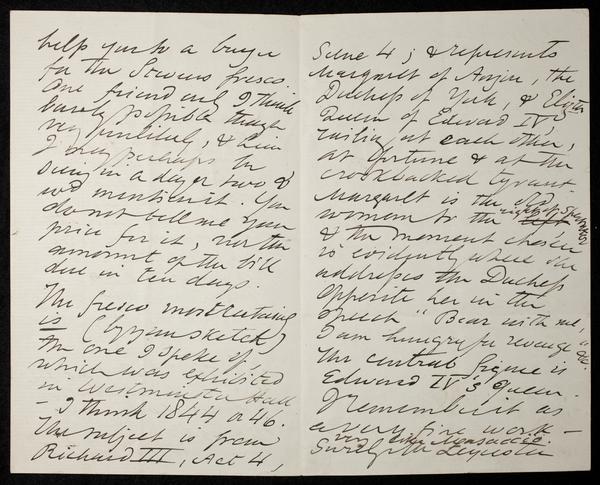 help you to a buyer
for the Severn fresco.
One friend only I think
barely possible though
very unlikely, & him
I may perhaps be
seeing in a day or two, &
wd mention it. You
do not tell me your
price for it, nor the
amount of the bill
due in ten days.
The fresco most certainly
is (by yr sketch)
the one I spoke of,
which was exhibited
in Westminster Hall
- I think 1844 or 46.
The subject is from
Richard III, Act 4,
Scene 4; & represents
Margaret of Anjou, the
Duchess of York, & Elizth
Queen of Edward IV,
railing at each other,
at fortune & at the
crookbacked tyrant.
Margaret is the
women to the right left
& the moment chosen
is evidently where she
addresses the Duchess
opposite her in the
speech "Bear with me,
I am hungry for revenge" &c.
The central figure is
Edward IV's Queen.
I remember it as
a very fine work -
very like Masaccio.
Surely Mr